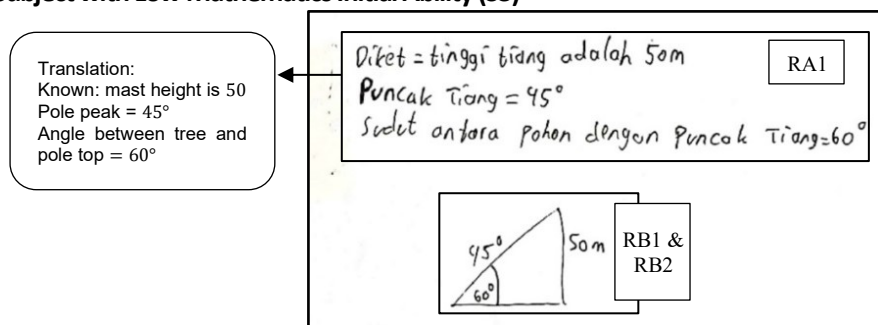 Subject with Low Mathematics Initial Ability (S3)
Translation:
Known: mast height is 50
Pole peak = 45°
Angle between tree and
pole top = 60°
Diket = tinggi tiang adalah 50m
Puncak Tiang = 45°
Sudut antara pohon dengan Puncak Tiang=60°
RA1
45°
50m
60°
RB1 &
RB2